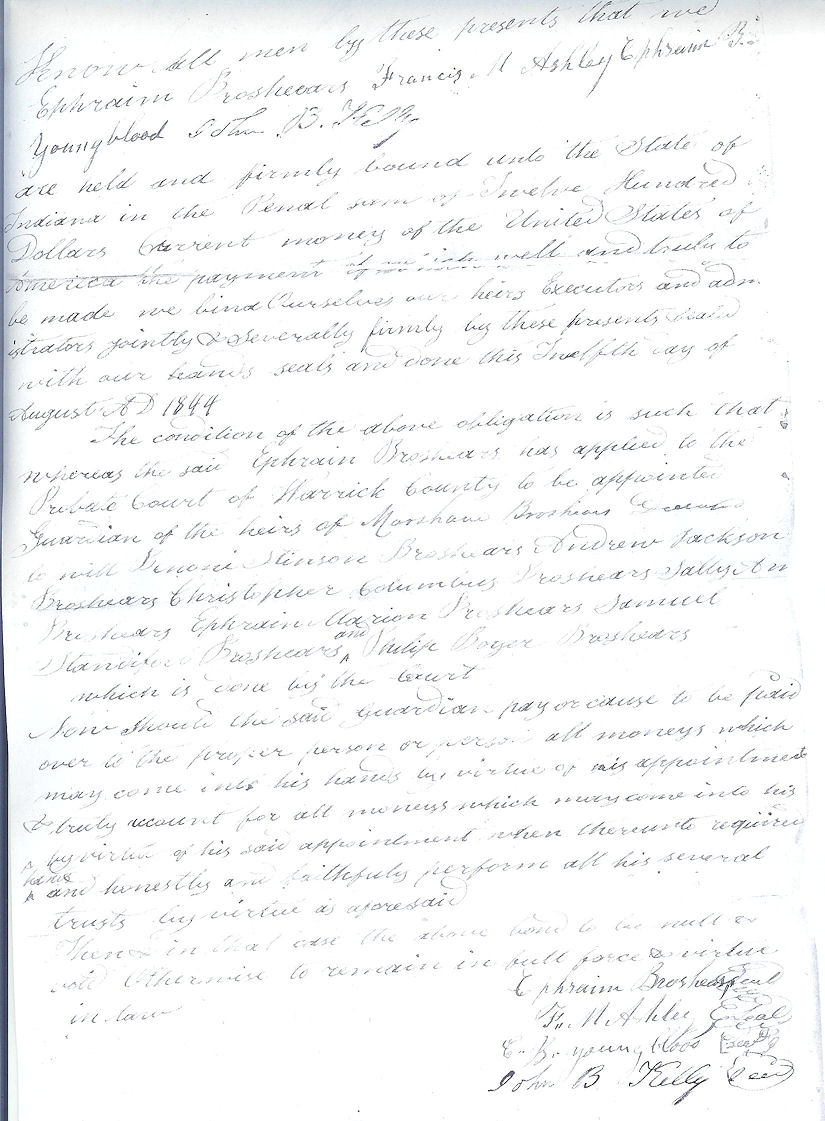 Know all men by these presents that we
Ephraim Broshears Francis M Ashley Ephraim B.
Youngblood John B. Kelly
are held and firmly bound unto the State of
Indiana in the Penal sum of Twelve Hundred
Dollars Current money of the United States of
America the payment of which well and truly to
be made we bind Ourselves our heirs Executors and adm
istrators jointly & severally firmly by these presents sealed
with our hands seals and done this Twelfth day of
August AD 1844
The condition of the above obligation is such that
whereas the said Ephrain Broshears has applied to the
Probate Court of Warrick County to be appointed
Guardian of the heirs of Marshave Broshears Deceased
to will Benoni Stinson Broshears Andrew Jackson
Broshears Christopher Columbus Broshears Sally An
Broshears Ephraim Marion Broshears Samuel
Standiford Broshears and Philip Boyer Broshears
which is done by the Court
Now should the said Guardian pay or cause to be paid
over to the proper person or person all moneys which
may come into his hands by virtue of his appointment
& truly account for all moneys which may come into his
hands by virtue of his said appointment when thereunto required
and honestly and faithfully perform all his several
trusts by virtue as aforesaid
Then & in that case the above bond to be null &
void Otherwise to remain in full force & virtue
in law
Ephraim Broshears Seal
F. M Ashley Seal
E. B. youngbloo Seal
John B Kelly Seal